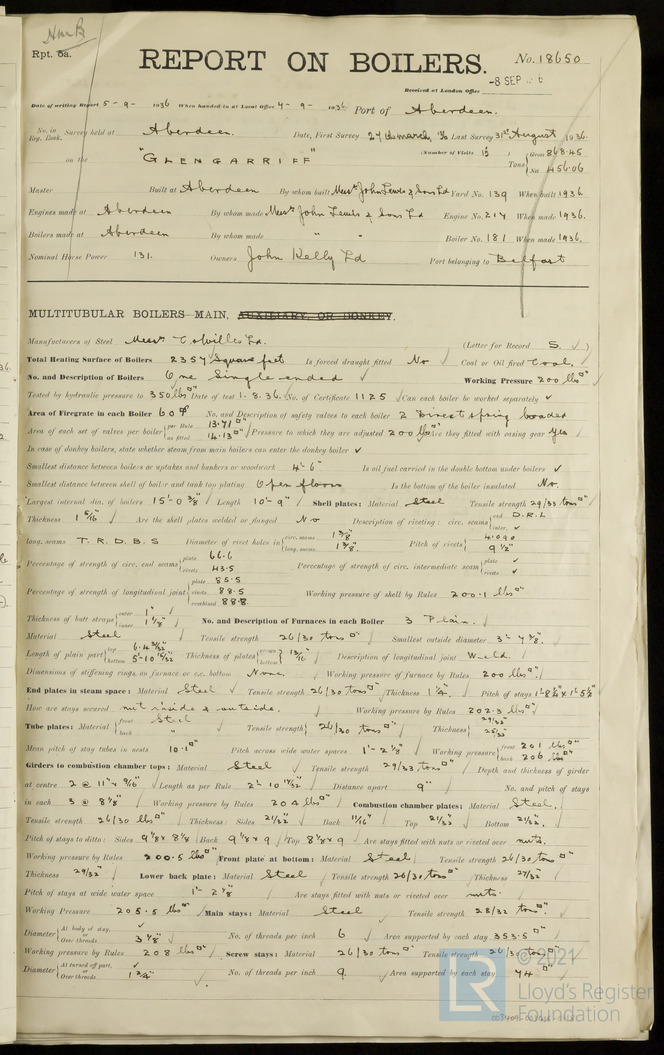 Rpt. 5a.
REPORT ON BOILERS.
No. 18650
Received at London Office -8 SEP
Date of writing Report 5-9-1936 When handed in at Local Office 7-9-1936 Port of Aberdeen.
No. in Reg. Book. Survey held at Aberdeen. Date, First Survey 27th March, 36 Last Survey 31st August 1936.
(Number of Visits 15) Gross 868.45
on the "GLENGARRIFF" Tons Net 456.06
Master Built at Aberdeen By whom built Messrs John Lewis & Sons Ld Yard No. 139 When built 1936
Engines made at Aberdeen By whom made Messrs John Lewis & Sons Ld Engine No. 217 When made 1936.
Boilers made at Aberdeen By whom made " " Boiler No. 181 When made 1936.
Nominal Horse Power 131. Owners John Kelly Ld Port belonging to Belfast
MULTITUBULAR BOILERS MAIN, AUXILIARY, OR DONKEY.
Manufacturers of Steel Messrs Colvilles Ld. (Letter for Record S. ✓)
Total Heating Surface of Boilers 2357 Square feet Is forced draught fitted No ✓ Coal or Oil fired Coal.
No. and Description of Boilers One Single ended ✓ Working Pressure 200 lbs□" ✓
Tested by hydraulic pressure to 350 lbs□" Date of test 1.8.36. No. of Certificate 1125 Can each boiler be worked separately ✓
Area of Firegrate in each Boiler 60 □' No. and Description of safety valves to each boiler 2 Direct spring loaded
Area of each set of valves per boiler per Rule 13.71□" as fitted 14.13□" Pressure to which they are adjusted 200 lbs□" Are they fitted with easing gear Yes
In case of donkey boilers, state whether steam from main boilers can enter the donkey boiler ✓
Smallest distance between boilers or uptakes and bunkers or woodwork 4'-6" Is oil fuel carried in the double bottom under boilers ✓
Smallest distance between shell of boiler and tank top plating Open floors Is the bottom of the boiler insulated No.
Largest internal dia. of boilers 15'-0 3/8" Length 10'-9" Shell plates: Material Steel Tensile strength 29/33 tons□"
Thickness 1 5/16" ✓ Are the shell plates welded or flanged No ✓ Description of riveting: circ. seams end D.R.L inter. ✓
long. seams T.R.D.B.S Diameter of rivet holes in circ. seams 1 3/8" long. seams 1 3/8" Pitch of rivets 4.090 9 1/2"
Percentage of strength of circ. end seams plate 66.6 rivets 43.5 Percentage of strength of circ. intermediate seam plate ✓ rivets ✓
Percentage of strength of longitudinal joint plate 85.5 rivets 88.5 combined 88.8. Working pressure of shell by Rules 200.1 lbs□"
Thickness of butt straps outer 1" inner 1 1/8" No. and Description of Furnaces in each Boiler 3 Plain.
Material Steel Tensile strength 26/30 tons□" Smallest outside diameter 3'-7 3/8"
Length of plain part top bottom Thickness of plates crown bottom 13/16" Description of longitudinal joint Weld.
Dimensions of stiffening rings on furnace or c.c. bottom None. Working pressure of furnace by Rules 200 lbs□".
End plates in steam space: Material Steel Tensile strength 26/30 tons□" Thickness 1 1/4" Pitch of stays
How are stays secured nut inside & outside. Working pressure by Rules 202.3 lbs□"
Tube plates: Material front Steel back " Tensile strength 26/30 tons□" Thickness 29/32"
Mean pitch of stay tubes in nests 10.1" Pitch across wide water spaces 1'-2 1/8" Working pressure front 201 lbs□" back 206 lbs□"
Girders to combustion chamber tops: Material Steel Tensile strength 29/33 tons□" Depth and thickness of girder
at centre 2 @ 11" x 9/16" Length as per Rule 2'-10 17/32" Distance apart 9" No. and pitch of stays
in each 3 @ 8 1/8" Working pressure by Rules 204 lbs□" Combustion chamber plates: Material Steel.
Tensile strength 26/30 lbs□" Thickness: Sides 21/32" Back 11/16" Top 21/32" Bottom 21/32".
Pitch of stays to ditto: Sides 9 1/8 x 8 1/8 Back 9 1/8 x 9 Top 8 1/8 x 9 Are stays fitted with nuts or riveted over nuts.
Working pressure by Rules 200.5 lbs□" Front plate at bottom: Material Steel Tensile strength 26/30 tons□"
Thickness 29/32" Lower back plate: Material Steel Tensile strength 26/30 tons□" Thickness 27/32
Pitch of stays at wide water space 1'-2 7/8" Are stays fitted with nuts or riveted over nuts.
Working Pressure 205.5 lbs□" Main stays: Material Steel Tensile strength 28/32 tons□".
Diameter At body of stay, or Over threads. 3 1/8" No. of threads per inch 6 Area supported by each stay 353.5□"
Working pressure by Rules 208 lbs□" Screw stays: Material 26/30 tons□" Tensile strength 26/30 tons□"
Diameter At turned off part, or Over threads. 1 3/4" No. of threads per inch 9 Area supported by each stay 74□"
© 2021
Lloyd's Register
Foundation